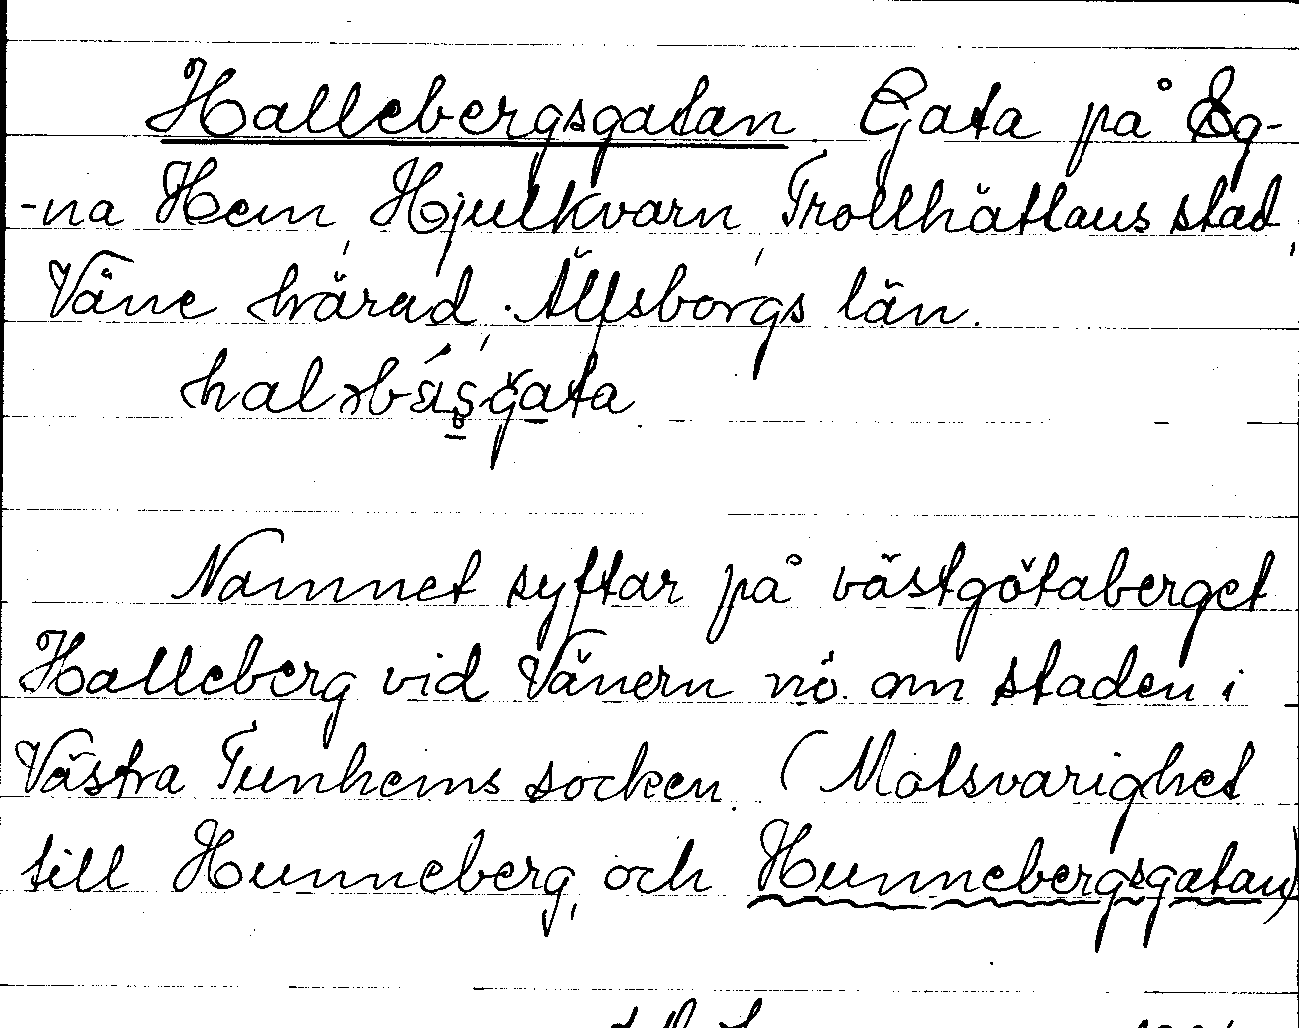 Hallebergsgatan. Gata på Eg-
-na Hem, Hjulkvarn, Trollhättans stad,
Väne härad, Älfsborgs län.
Namnet syftar på västgötaberget
Halleberg vid Vänern nö. om staden i
Västra Tunhems socken. (Motsvarighet
till Hunneberg, och Hunnebergsgatan)